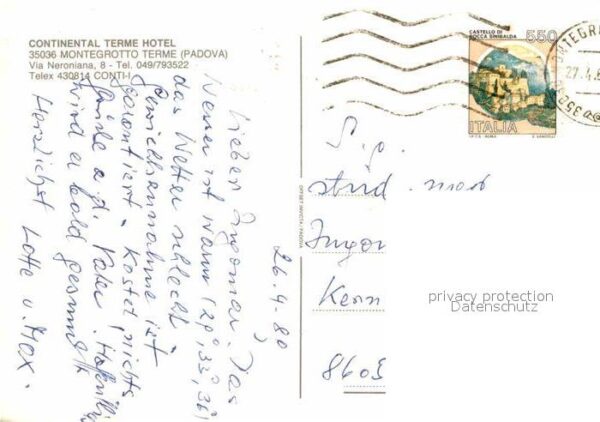 CONTINENTAL TERME HOTEL
35036 MONTEGROTTO TERME (PADOVA)
Via Neroniana, 8 - Tel. 049/793522
Telex 430814 CONTI-I
26.4-80
Lieber Ingomar, Das
Wasser ist warm (29°, 33°, 36°)
das Wetter schlecht
Gewichtsannahme ist
garantiert - kostet nichts
Grüße a. d. Vater.
sind er bald gesund
Herzlichst Lotte u. Max.
OFFSET INVICTA - PADOVA
CASTELLO DI
ROCCA SINIBALDA
550
ITALIA
I.P.Z.S. - ROMA
27.4.8
35036
S.g.
stud. med
Ingo
Kern
8605
privacy protection
Datenschutz